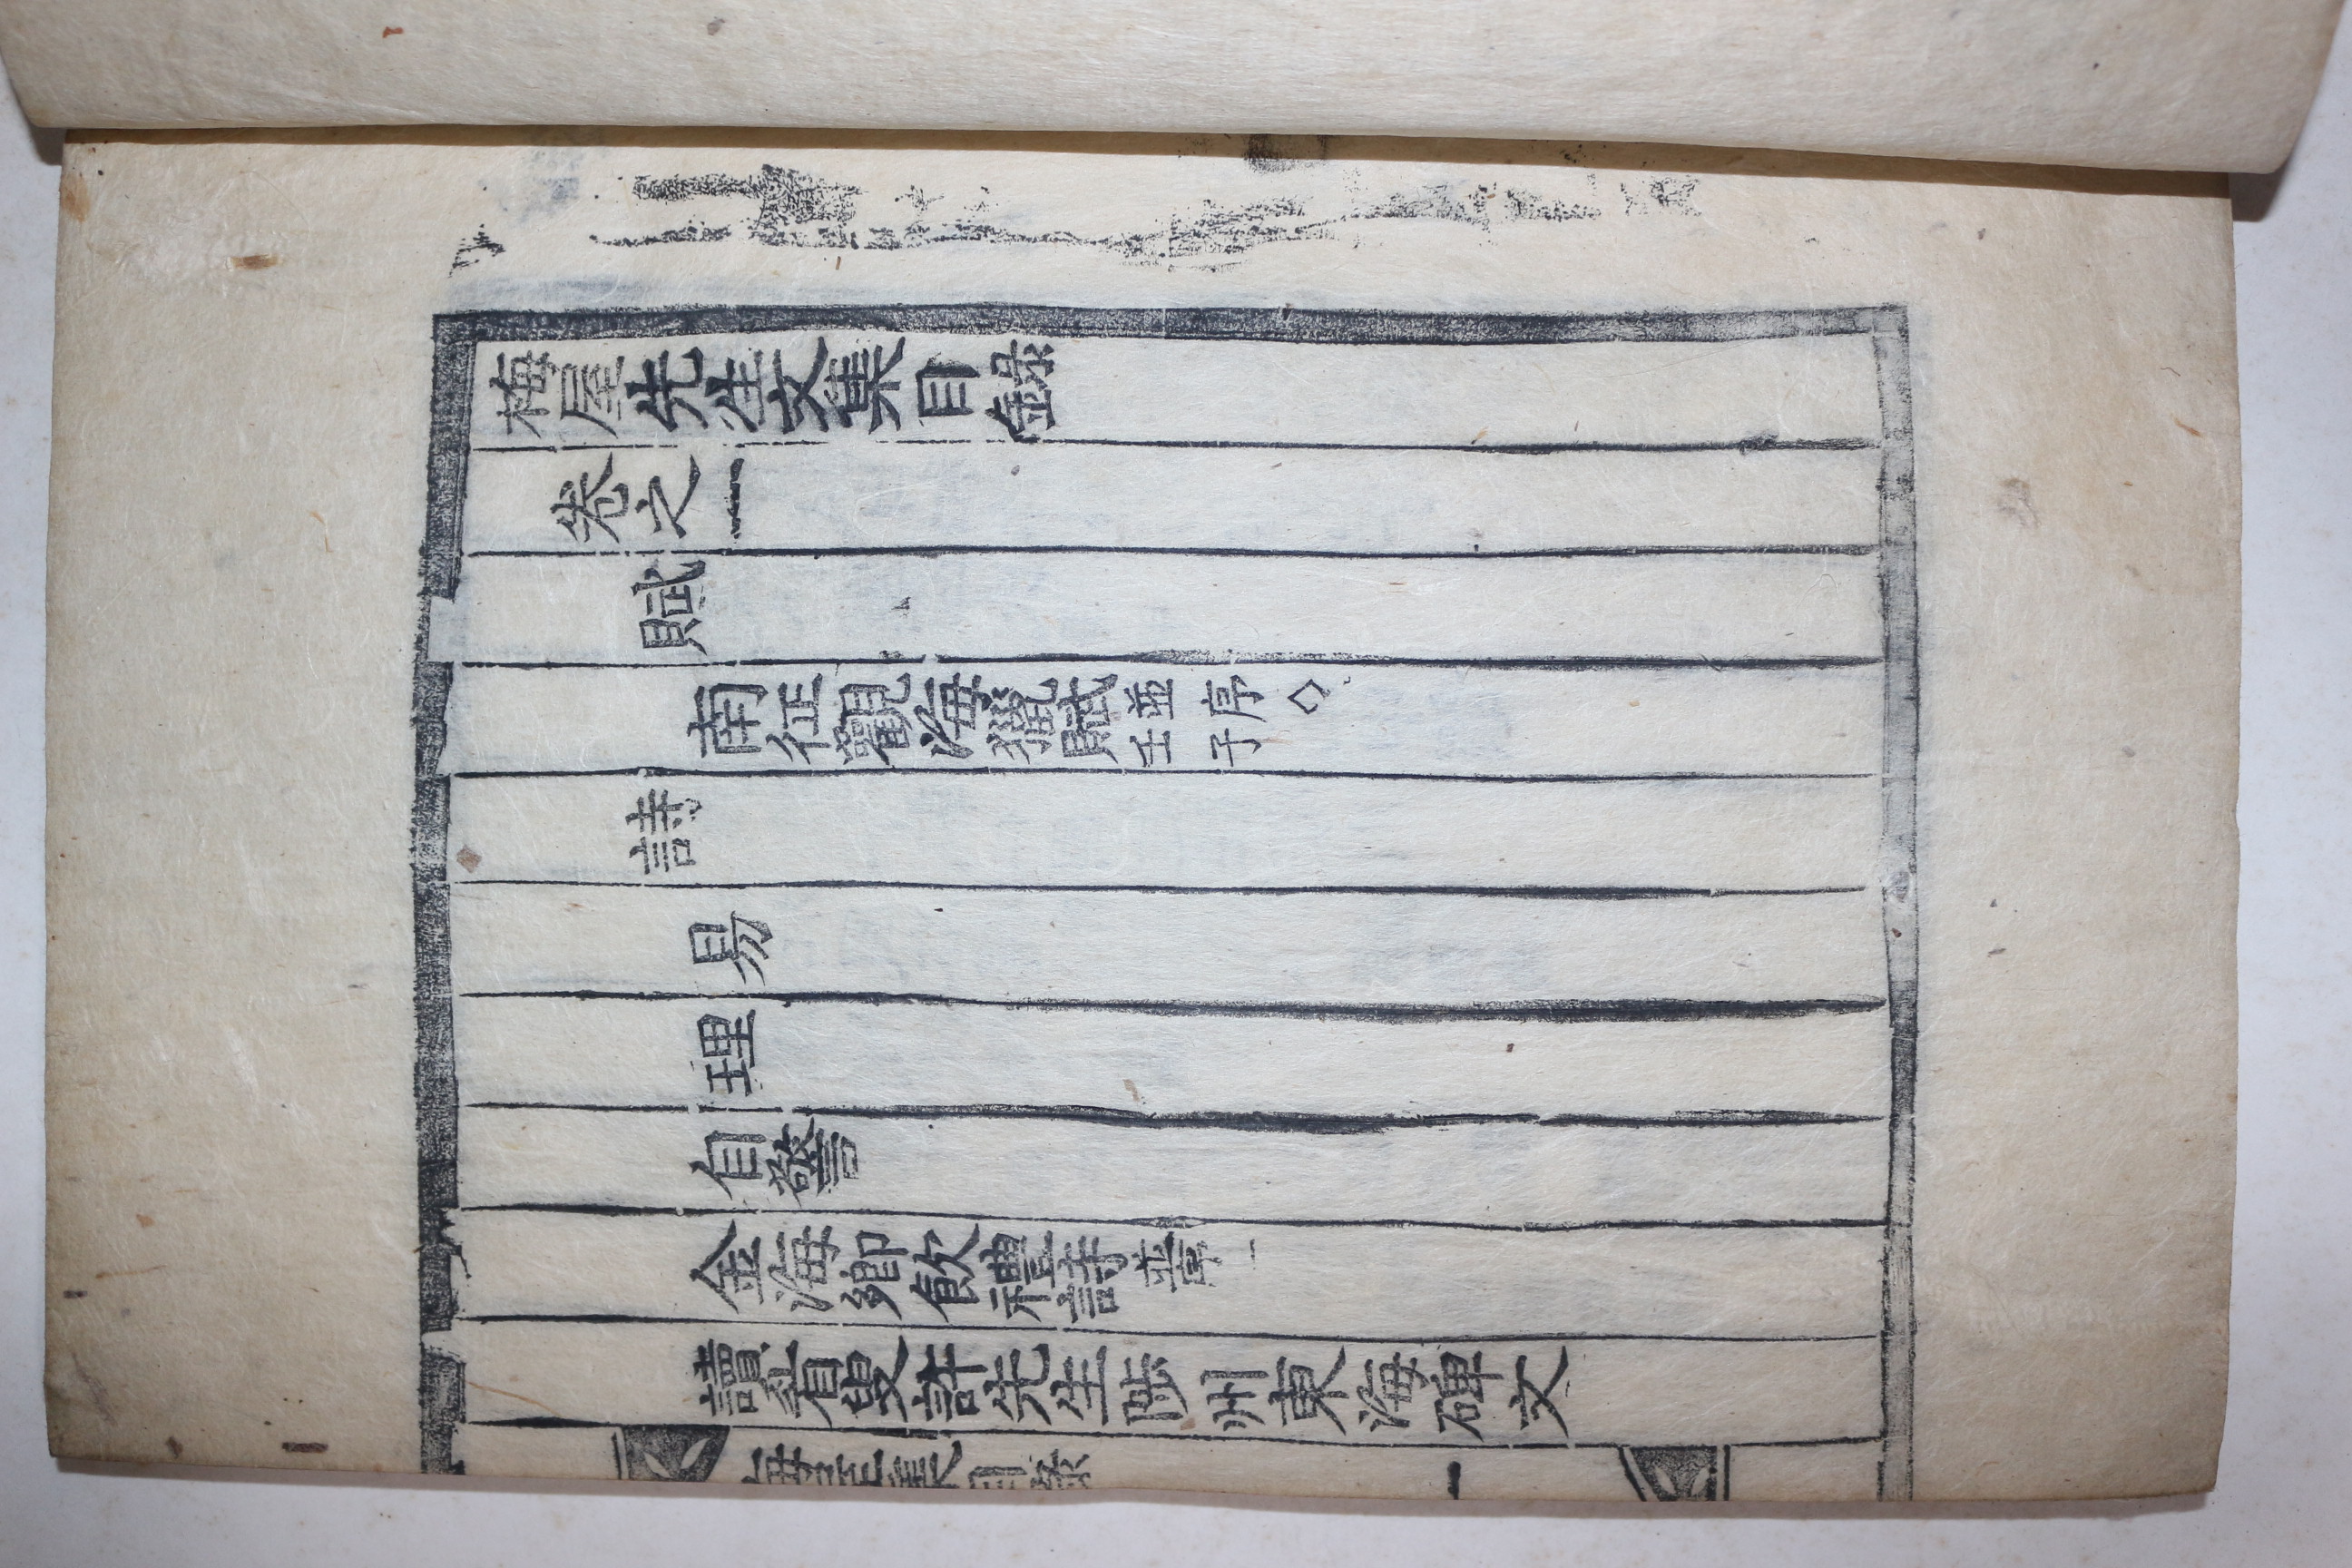 梅屋先生文集目錄
卷之一
賦
南征觀海獵賦並序壬子
詩
易
理
自警
金海鄉飮禮詩
讀眉叟許先生陟州東海碑文
梅屋集目錄 一